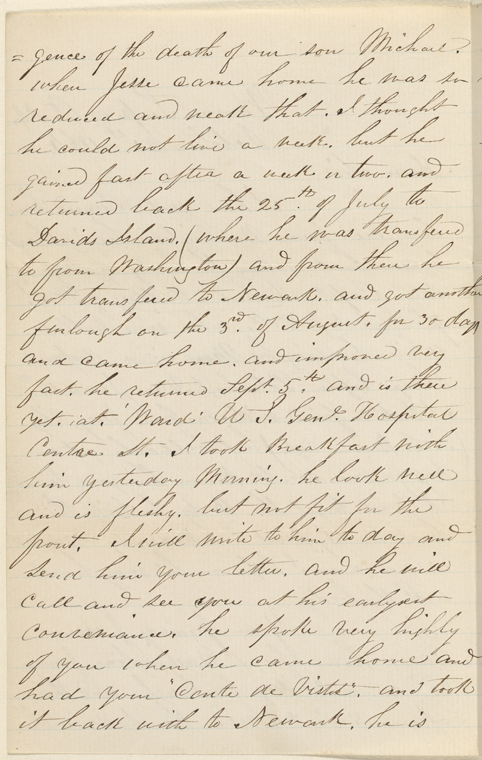 = gence of the death of our son Michael.
when Jesse came home he was so
reduced and weak that. I thought
he could not live a week. but he
gained fast after a week or two. and
returned back the 25th. of July to
Davids Island. (where he was transfered
to from Washington) and from there he
got transfered to Newark. and got another
furlough on the 3rd. of August. for 30 days
and came home. and improved very
fast. he returned Sept. 5th and is there
yet. at. 'Ward' U S. Genl. Hospital
Centre St. I took Breakfast with
him yesterday Morning. he look well
and is fleshy. but not fit for the
front. I will write to him to day and
send him your letter. and he will
call and see you at his earlyest
conveniance. he spoke very highly
of you when he came home and
had your "Carte de Visite". and took
it back with to Newark. he is